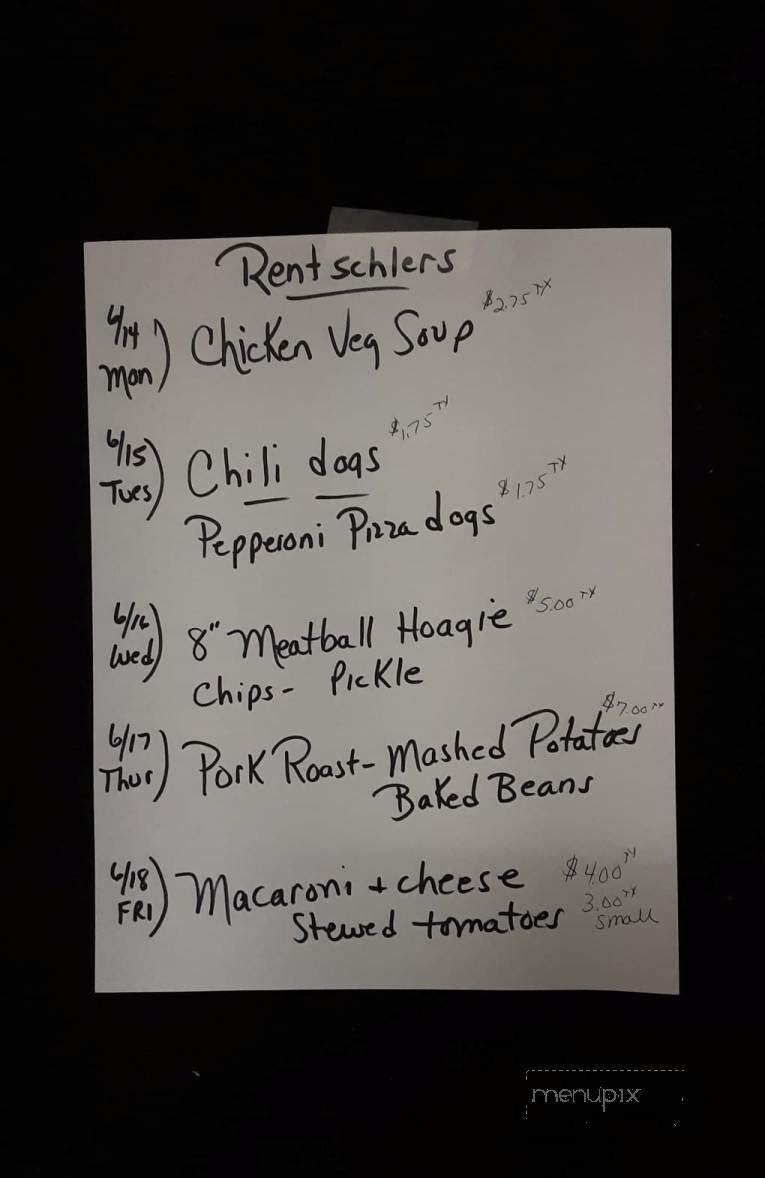 Rentschlers
6/14 Mon) Chicken Veg Soup $2.75 TX
6/15 Tues) Chili dogs $1.75 TX
Pepperoni Pizza dogs $1.75 TX
6/16 Wed) 8" Meatball Hoagie $5.00 TX
Chips - Pickle
6/17 Thur) Pork Roast - Mashed Potatoes $7.00 TX
Baked Beans
6/18 FRI) Macaroni + cheese $4.00 TX
Stewed tomatoes 3.00 TX small
menupix